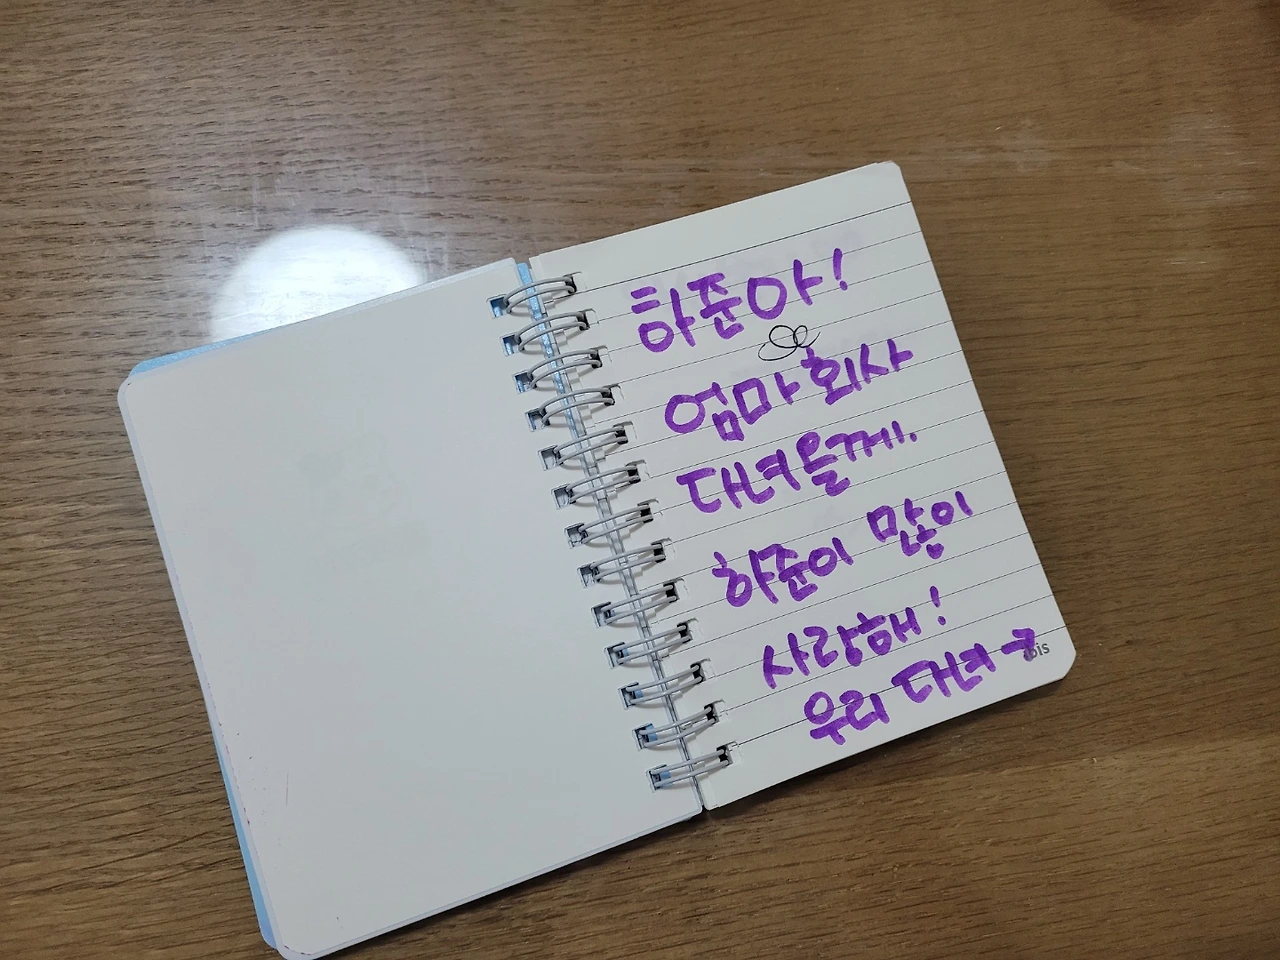 하준아!
엄마 회사
다녀올께.
하준이 많이
사랑해!
우리 다녀